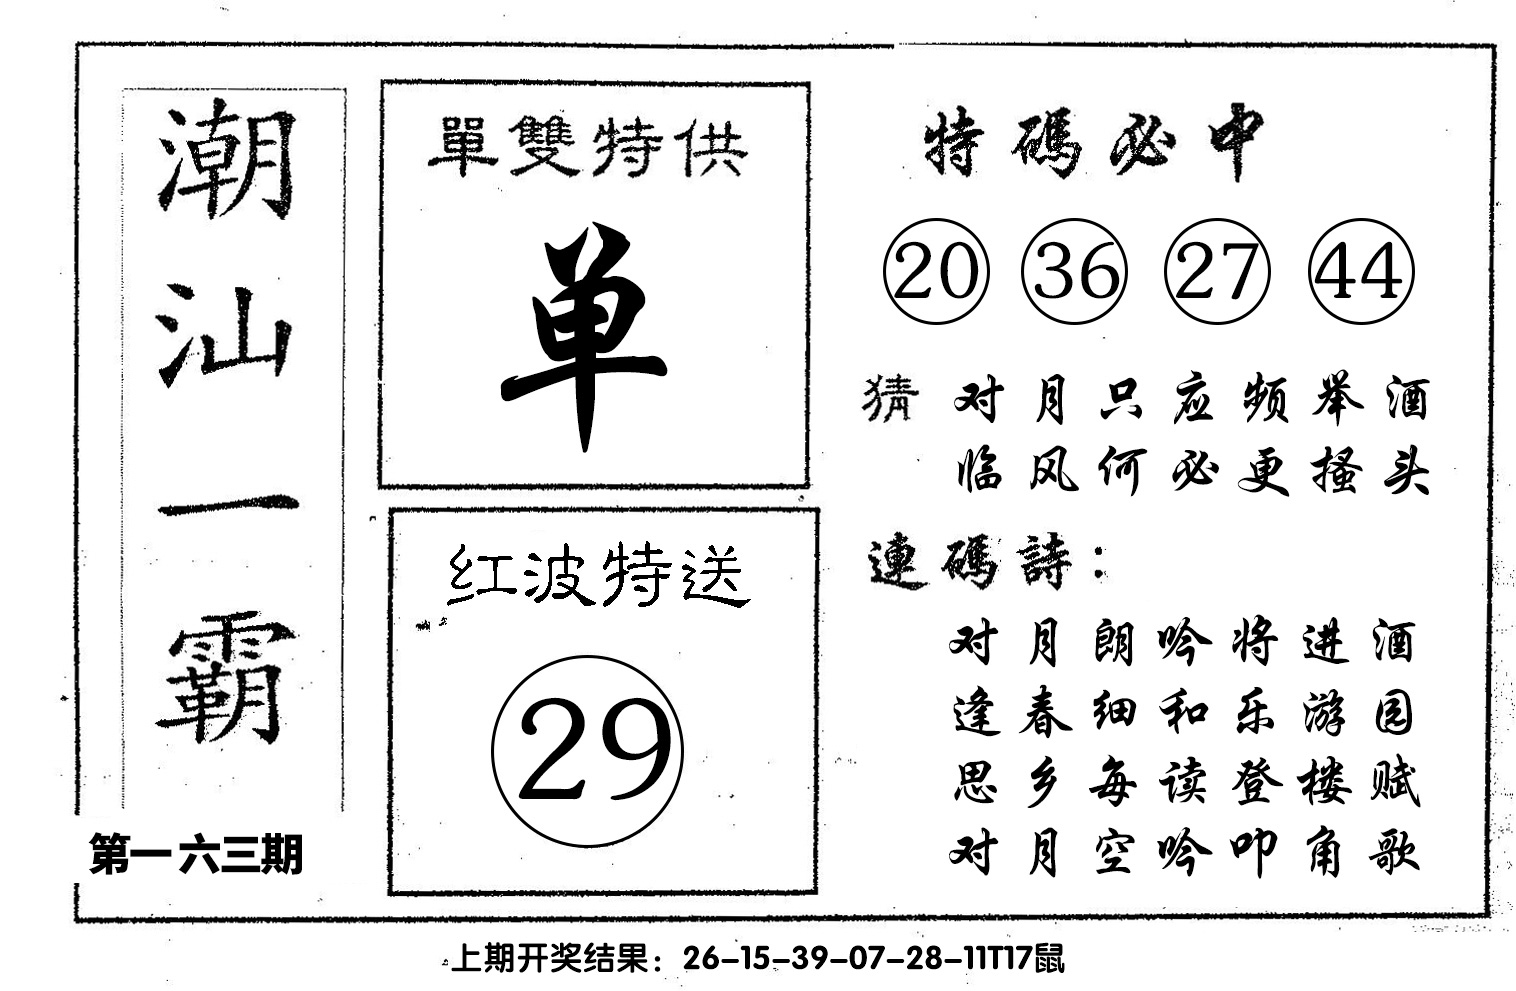 潮汕一霸
第一六三期
單雙特供
单
红波特送
29
特碼必中
20 36 27 44
猜 对月只应频举酒
临风何必更搔头
連碼詩：
对月朗吟将进酒
逢春细和乐游园
思乡每读登楼赋
对月空吟叩角歌
上期开奖结果：26-15-39-07-28-11T17鼠